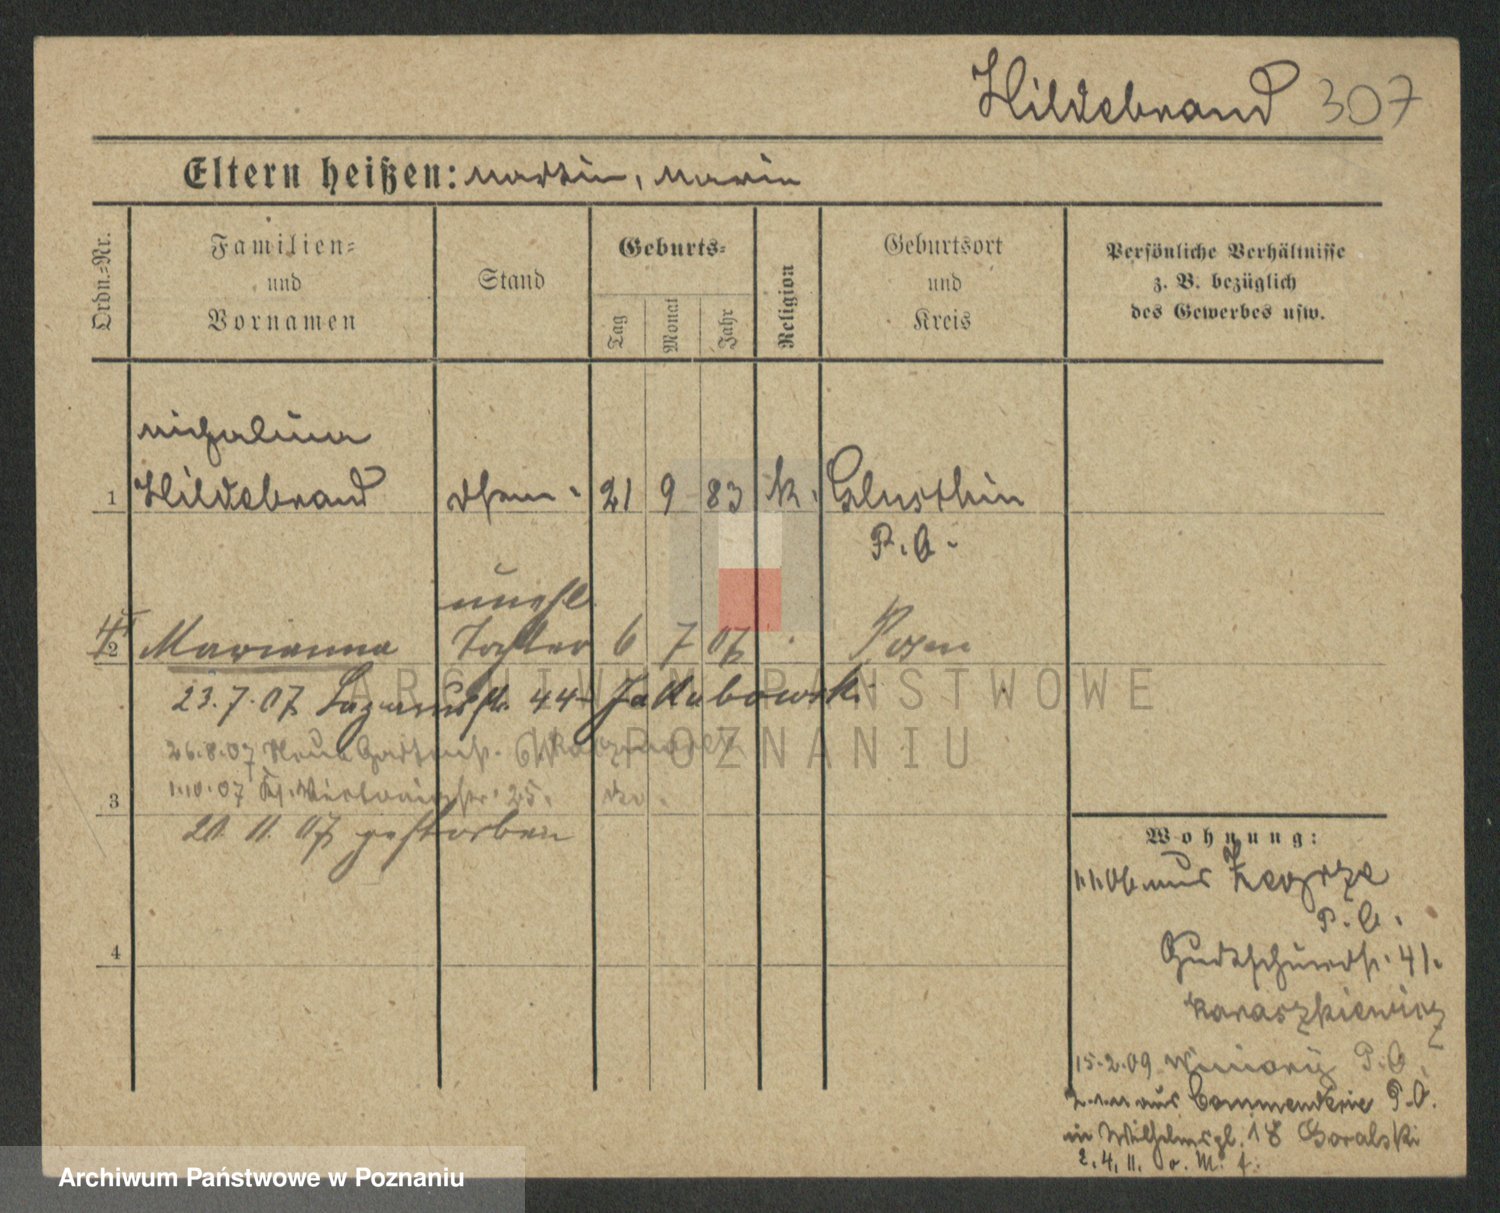 Hildebrand 307
Eltern heißen: Martin, Marie
Ordn.-Nr.
Familien-
und
Vornamen
Stand
Geburts-
Tag
Monat
Jahr
Religion
Geburtsort
und
Kreis
Persönliche Verhältnisse
z. B. bezüglich
des Gewerbes usw.
Michalina
1 Hildebrand 21 9 83 k.
P. O.
unehl.
2 Marianna Tochter 6 7 07 Posen
23.7.07 Lazarusstr. 44 Jakubowski
26.8.07 Neue Gartenstr.
1.10.07 25. do.
3
21. 11. 07 gestorben
4
Wohnung:
aus Zegrze
P. O.
41.
Karaszkiewicz
15.2.09 Winiary P. O.
aus Commenderie P. O.
in Wilhelmspl. 18 Goralski
2. 4. 11.
ARCHIWUM PAŃSTWOWE
W POZNANIU
Archiwum Państwowe w Poznaniu